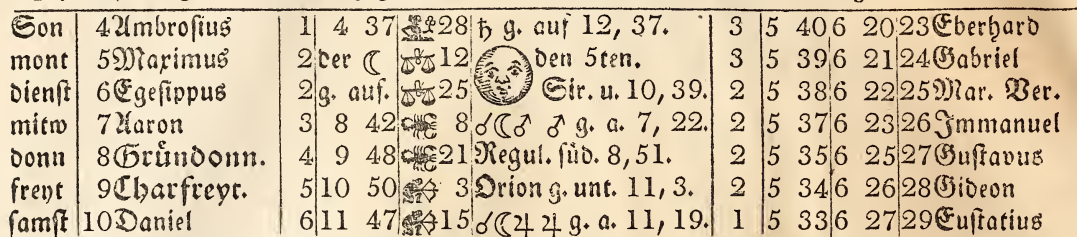 Son 4 Ambrosius 1 4 37 28 ♄ g. auf 12, 37. 3 5 40 6 20 23 Eberhard
mont 5 Maximus 2 der ☾ 12 den 5ten. 3 5 39 6 21 24 Gabriel
dienst 6 Egesippus 2 g. auf. 25 Sir. u. 10, 39. 2 5 38 6 22 25 Mar. Ver.
mitw 7 Aaron 3 8 42 8 ☌☾♂ ♂ g. a. 7, 22. 2 5 37 6 23 26 Immanuel
donn 8 Gründonn. 4 9 48 21 Regul. süd. 8, 51. 2 5 35 6 25 27 Gustavus
freyt 9 Charfreyt. 5 10 50 3 Orion g. unt. 11, 3. 2 5 34 6 26 28 Gideon
samst 10 Daniel 6 11 47 15 ☌☾♃ ♃ g. a. 11, 19. 1 5 33 6 27 29 Eustatius